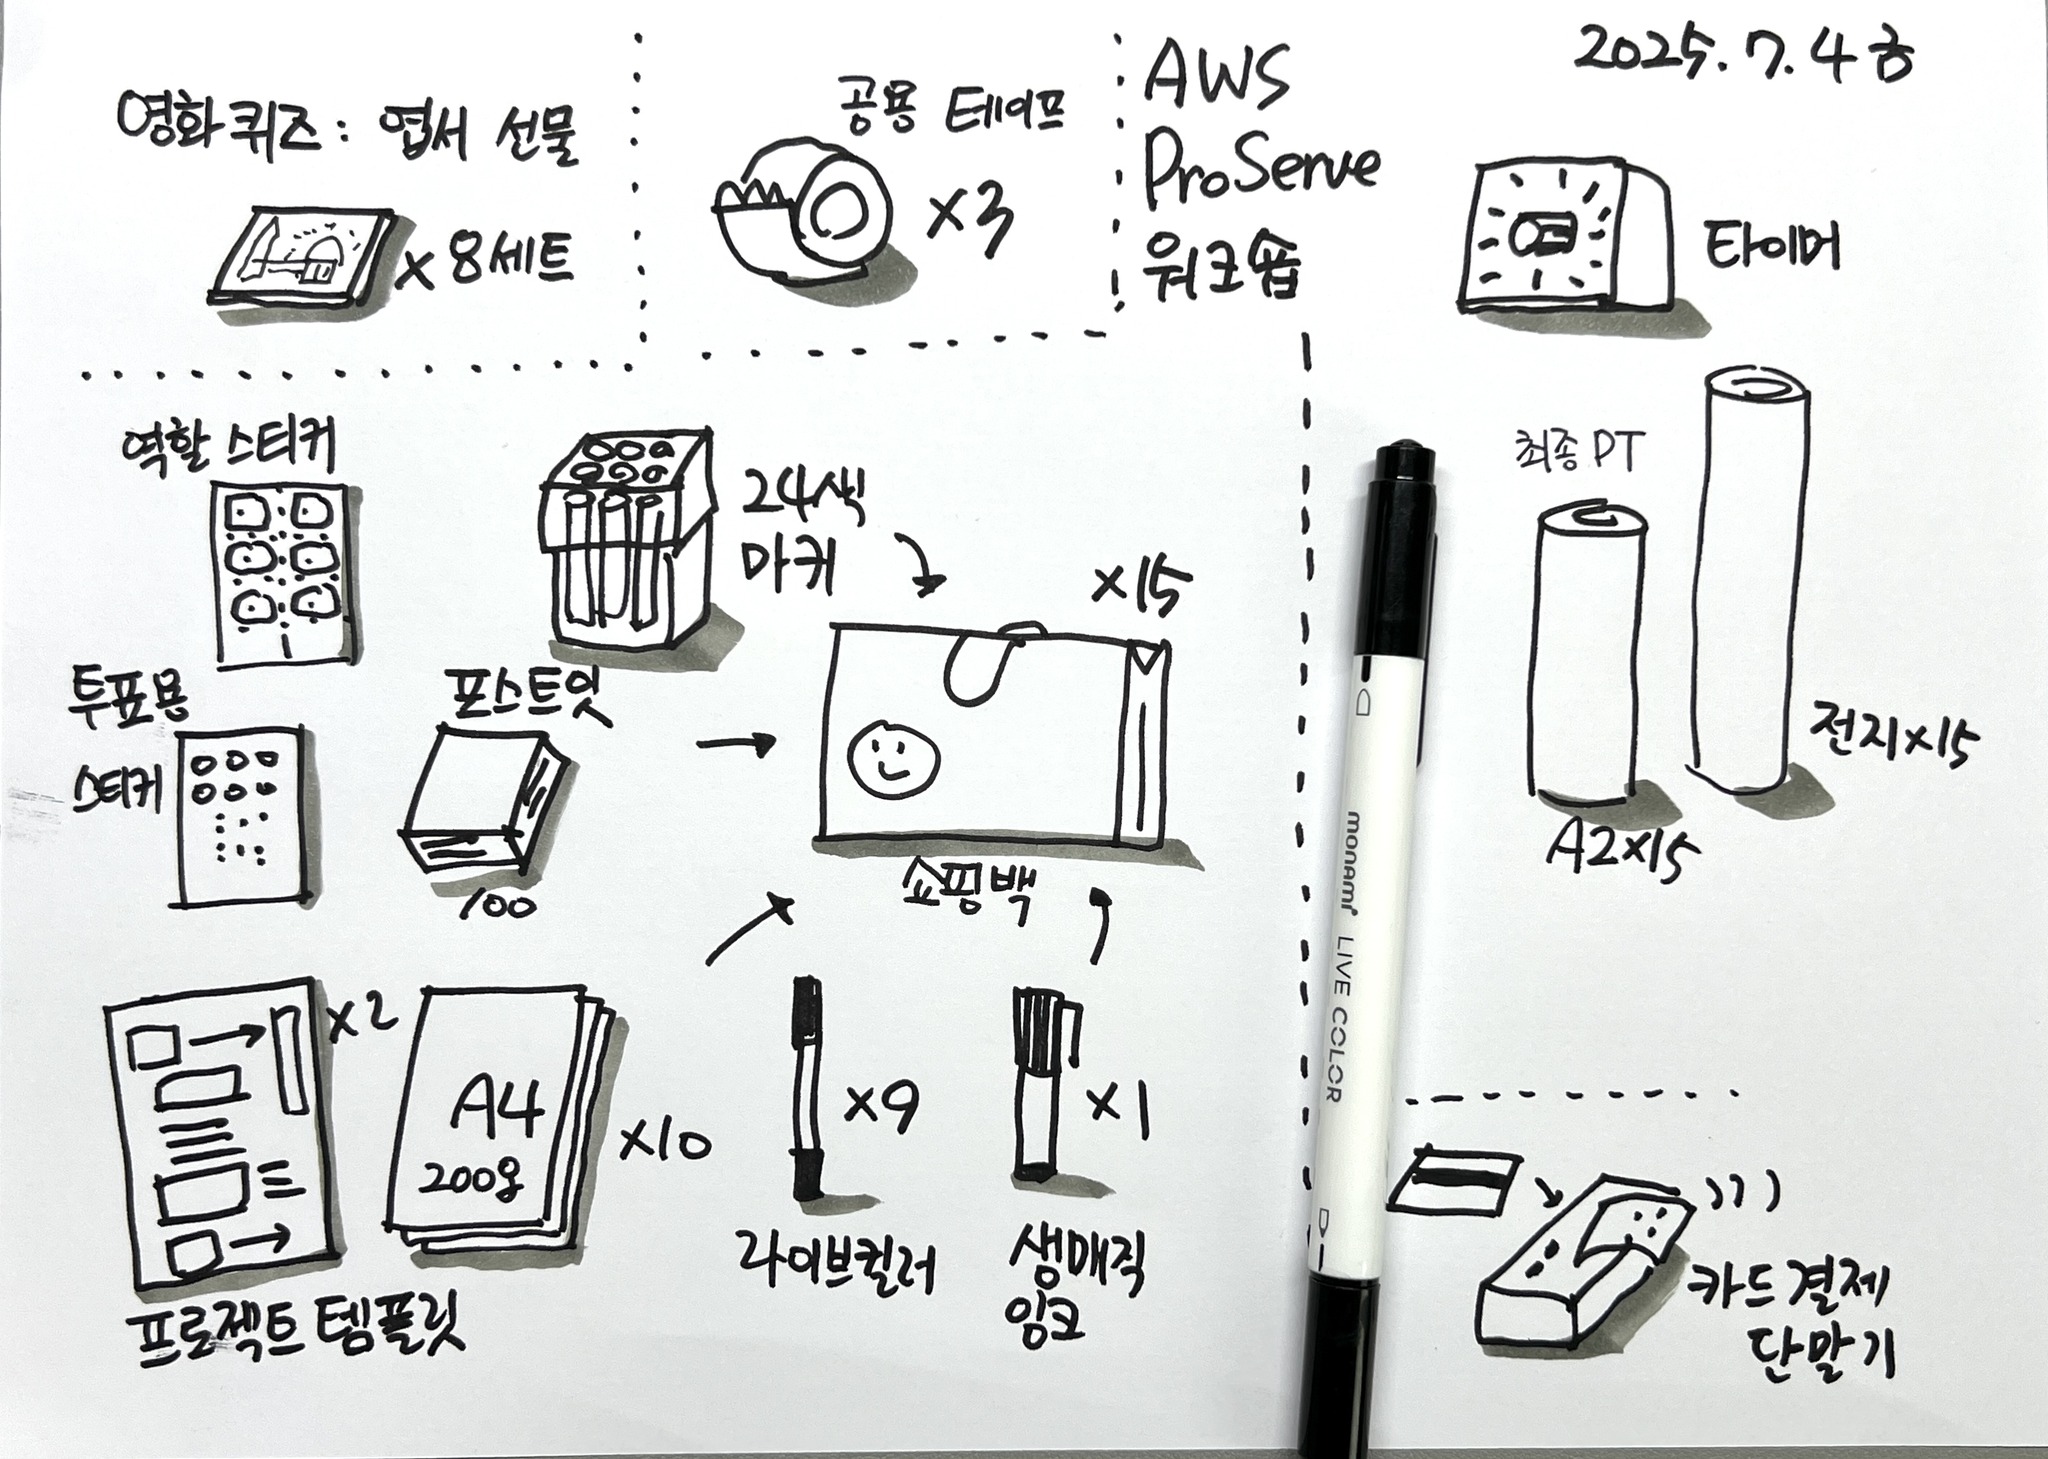 영화퀴즈: 엽서 선물
x 8세트
공용 테이프
x3
AWS
ProServe
워크숍
2025.7.4 금
타이머
역할 스티커
24색
마커
x15
투표용
스티커
포스트잇
100
쇼핑백
최종 PT
A2x15
전지x15
x2
A4
200g
x10
프로젝트 템플릿
x9
라이브컬러
x1
생매직
잉크
monami LIVE COLOR
카드결제
단말기